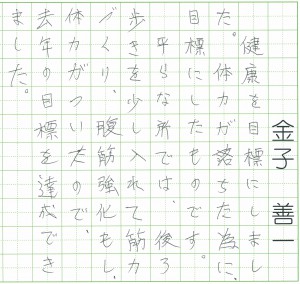 金子 善一
健康を目標にしまし
た。体力が落ちた為に、
目標にしたものです。
平らな所では、後ろ
歩きを少し入れて筋力
づくり、腹筋強化もし、
体力がついたので、
去年の目標を達成でき
ました。